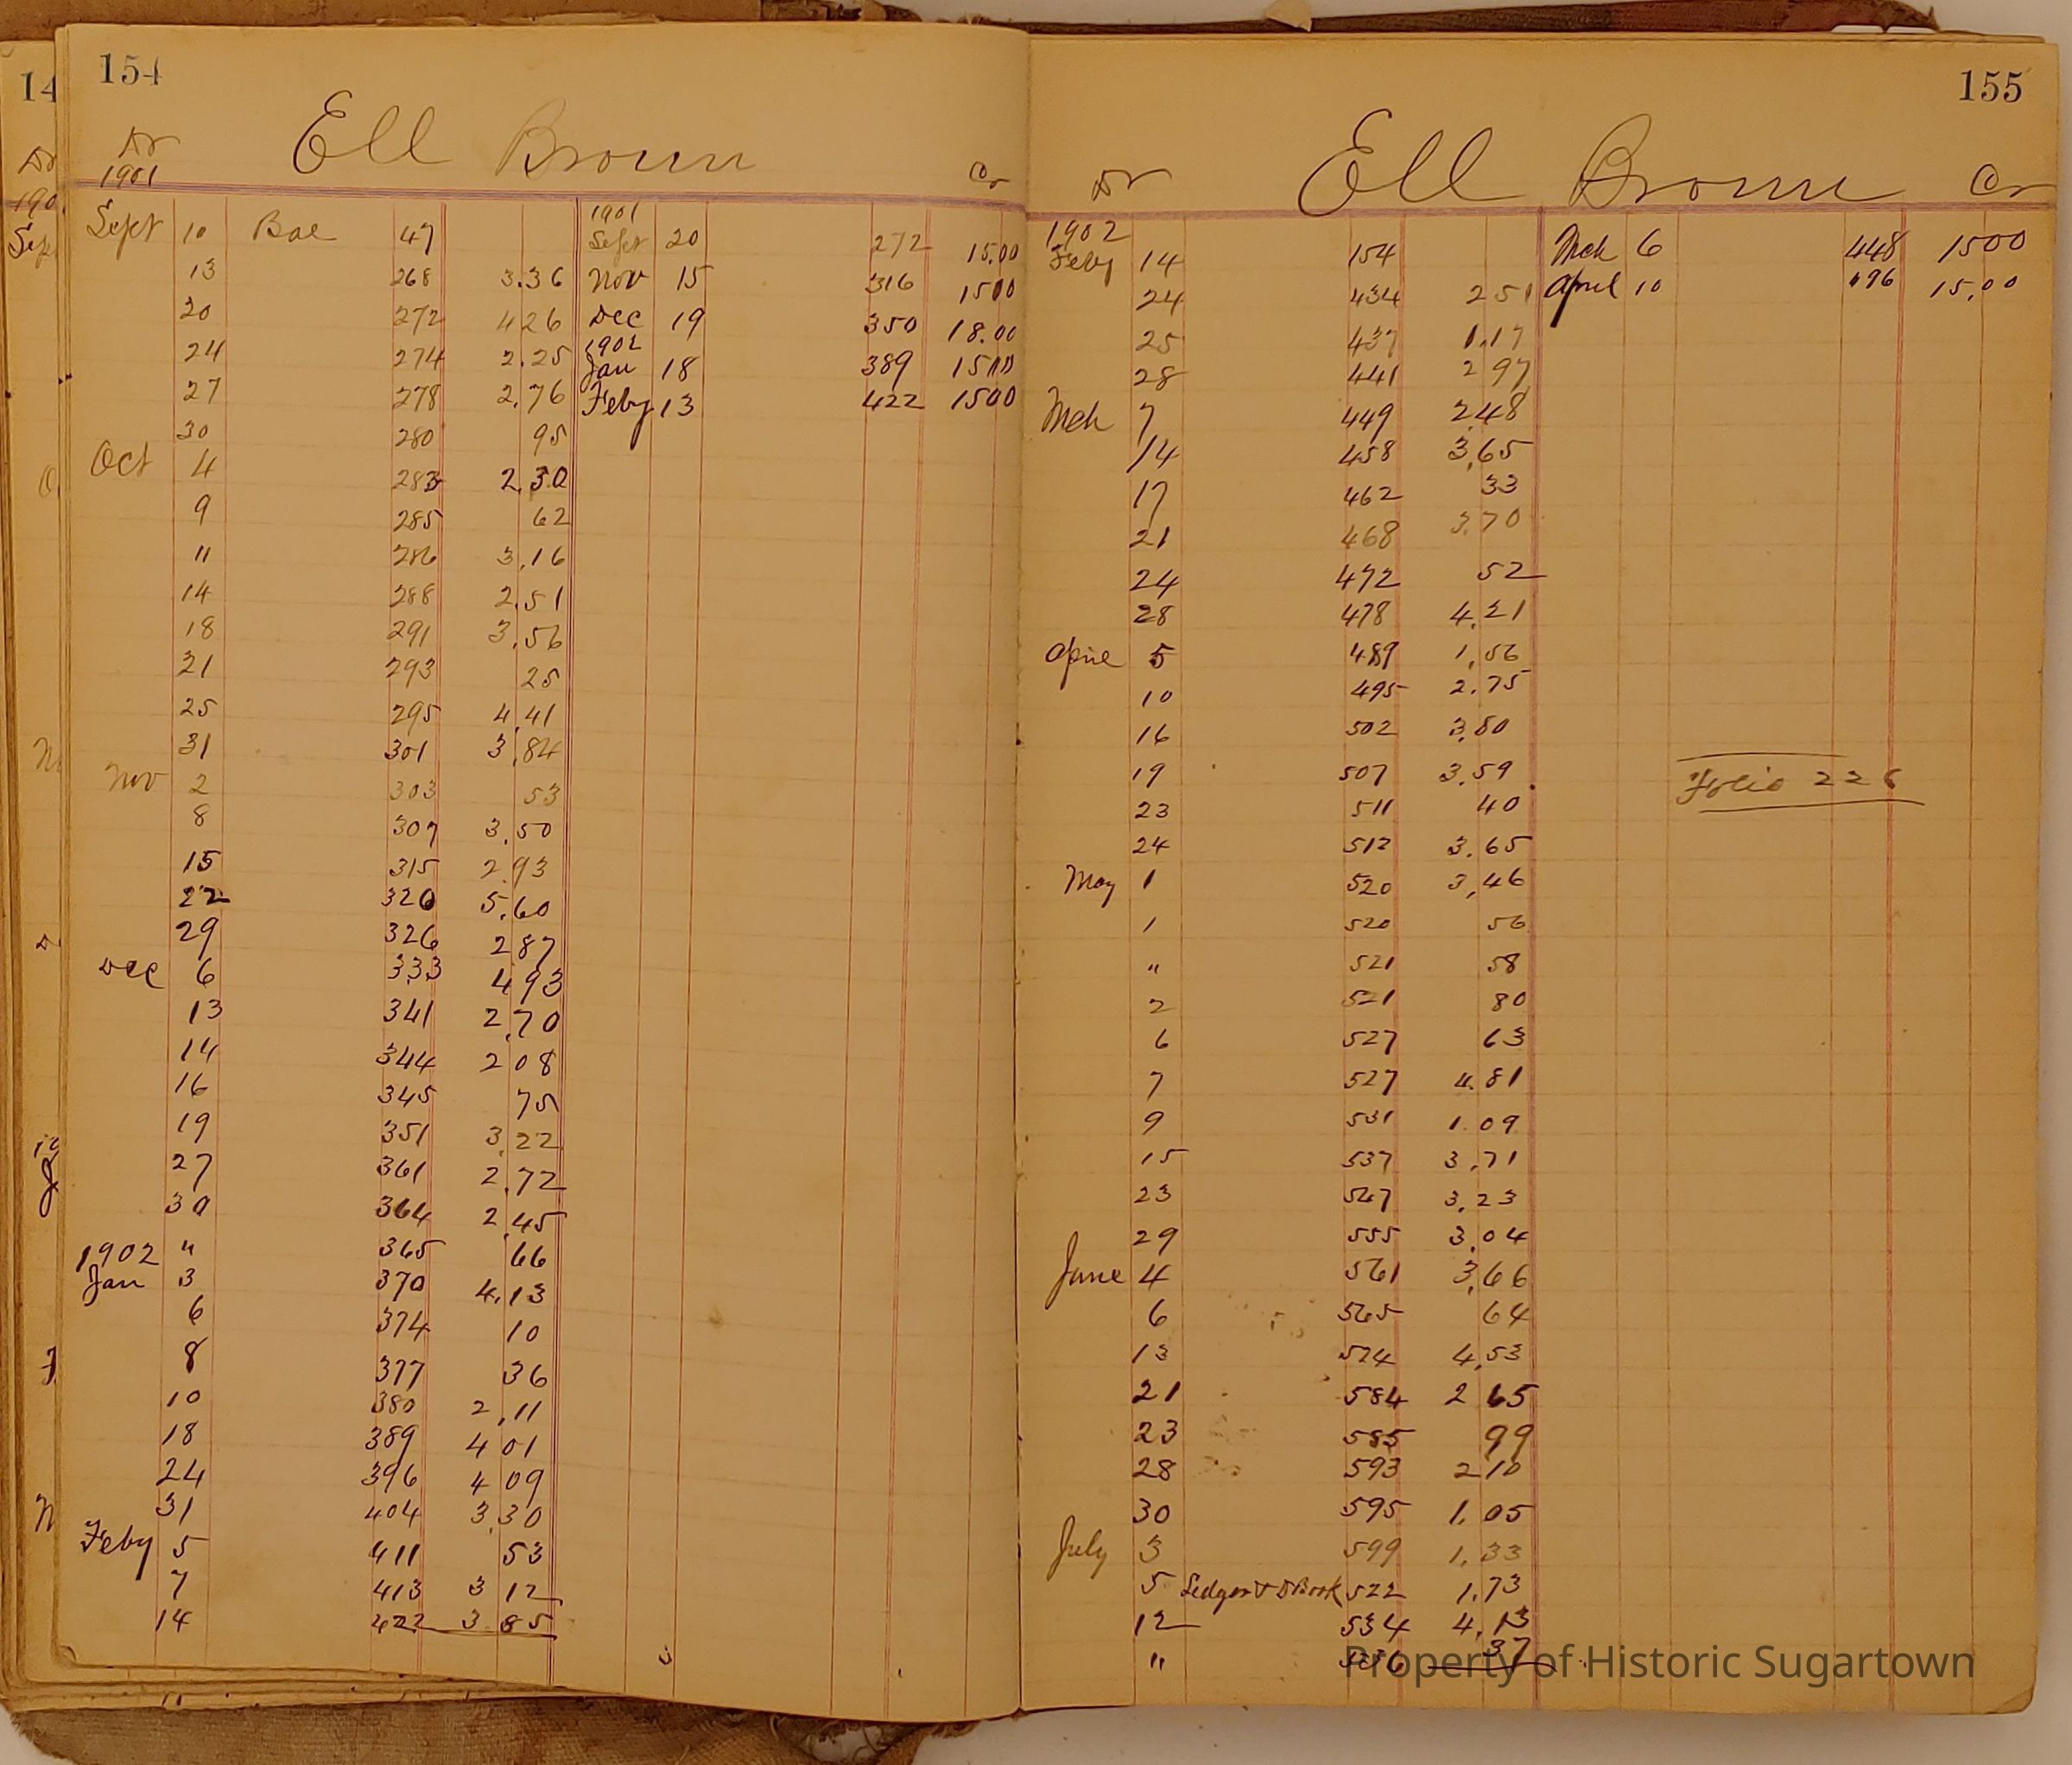 154
Ell Brown
Dr
1901
Cr
Sept 10 Bal 47
13 268 3.36
20 272 4 26
24 274 2.25
27 278 2.76
30 280 95
Oct 4 283 2.30
9 285 62
11 286 3.16
14 288 2.51
18 291 3.56
21 293 25
25 295 4.41
31 301 3.84
Nov 2 303 53
8 307 3.50
15 315 2.93
22 320 5.60
29 326 2 87
Dec 6 333 4 93
13 341 2.70
14 344 2 08
16 345 75
19 351 3.22
27 361 2.72
30 364 2.45
" 365 66
1902
Jan 3 370 4.13
6 374 10
8 377 36
10 380 2.11
18 389 4 01
24 396 4 09
31 404 3.30
Feby 5 411 53
7 413 3 12
14 422 3.85
1901
Sept 20 272 15.00
Nov 15 316 1500
Dec 19 350 18.00
1902
Jan 18 389 1500
Feby 13 422 1500
155
Dr Ell Brown Cr
1902
Feby 14 154
24 434 2 51
25 437 1.17
28 441 2 97
Mch 7 449 2.48
14 458 3.65
17 462 33
21 468 3.70
24 472 52
28 478 4.21
April 5 489 1.56
10 495 2.75
16 502 3.80
19 507 3.59
23 511 40
24 512 3.65
May 1 520 3.46
1 520 56
" 521 58
2 521 80
6 527 63
7 527 4.81
9 531 1.09
15 537 3.71
23 547 3.23
29 555 3.04
June 4 561 3.66
6 565 64
13 574 4.53
21 584 2 65
23 585 99
28 593 2 10
30 595 1.05
July 3 599 1.33
5 Ledger & DBook 522 1.73
12 534 4.13
" 536 37
Mch 6 448 1500
April 10 496 15.00
Folio 226
Property of Historic Sugartown